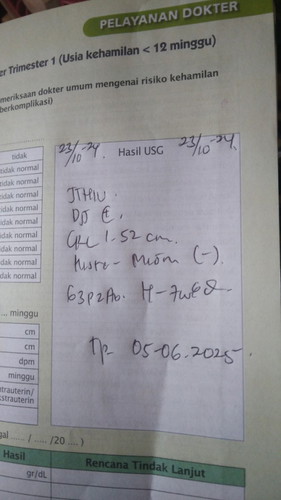 PELAYANAN DOKTER
er Trimester 1 (Usia kehamilan < 12 minggu)
meriksaan dokter umum mengenai risiko kehamilan
berkomplikasi)
23/10-24. Hasil USG 23/10-24.
tidak
tidak normal
tidak normal
tidak normal
tidak normal
tidak normal
tidak normal
tidak normal
dak normal
JTHIU.
DJJ
CRL 1.52 cm.
(-).
G3P2A0. H-7w6d.
TP 05-06.2025.
.... minggu
cm
cm
dpm
minggu
trauterin/
kstrauterin
gal ...... / ..... /20 ... )
Hasil
Rencana Tindak Lanjut
gr/dL